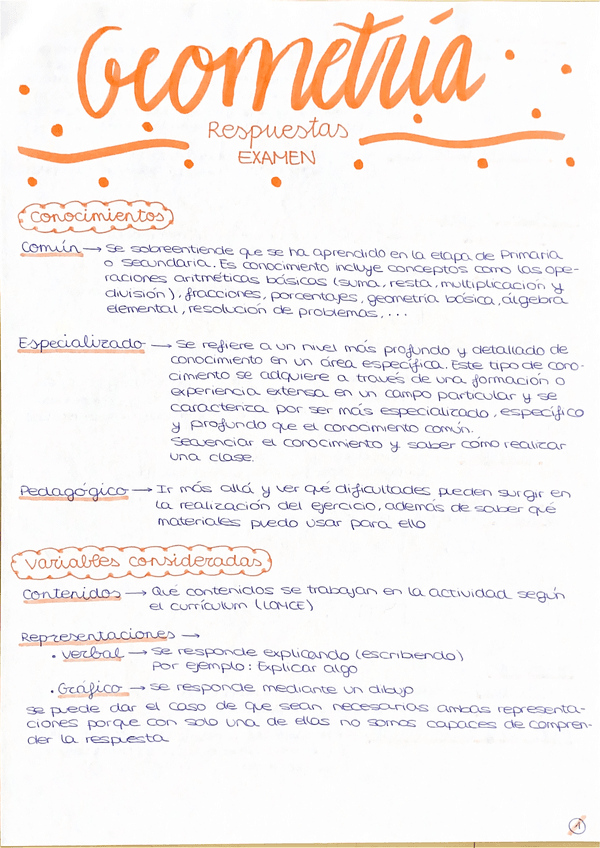 Geometría
Respuestas
EXAMEN
Conocimientos
Común → Se sobreentiende que se ha aprendido en la etapa de Primaria
o Secundaria. Es conocimiento incluye conceptos como las ope-
raciones aritméticas básicas (suma, resta, multiplicación y
división), fracciones, porcentajes, geometría básica, álgebra
elemental, resolución de problemas, ...
Especializado → Se refiere a un nivel más profundo y detallado de
conocimiento en un área específica. Este tipo de cono-
cimiento se adquiere a través de una formación o
experiencia extensa en un campo particular y se
caracteriza por ser más especializado, específico
y profundo que el conocimiento común.
Secuenciar el conocimiento y saber cómo realizar
una clase.
Pedagógico → Ir más allá y ver qué dificultades pueden surgir en
la realización del ejercicio, además de saber qué
materiales puedo usar para ello
Variables consideradas
Contenidos → Qué contenidos se trabajan en la actividad según
el currículum (LOMCE)
Representaciones →
• Verbal → Se responde explicando (escribiendo)
Por ejemplo: Explicar algo
• Gráfico → Se responde mediante un dibujo
Se puede dar el caso de que sean necesarias ambas representa-
ciones porque con solo una de ellas no somos capaces de compren-
der la respuesta
1